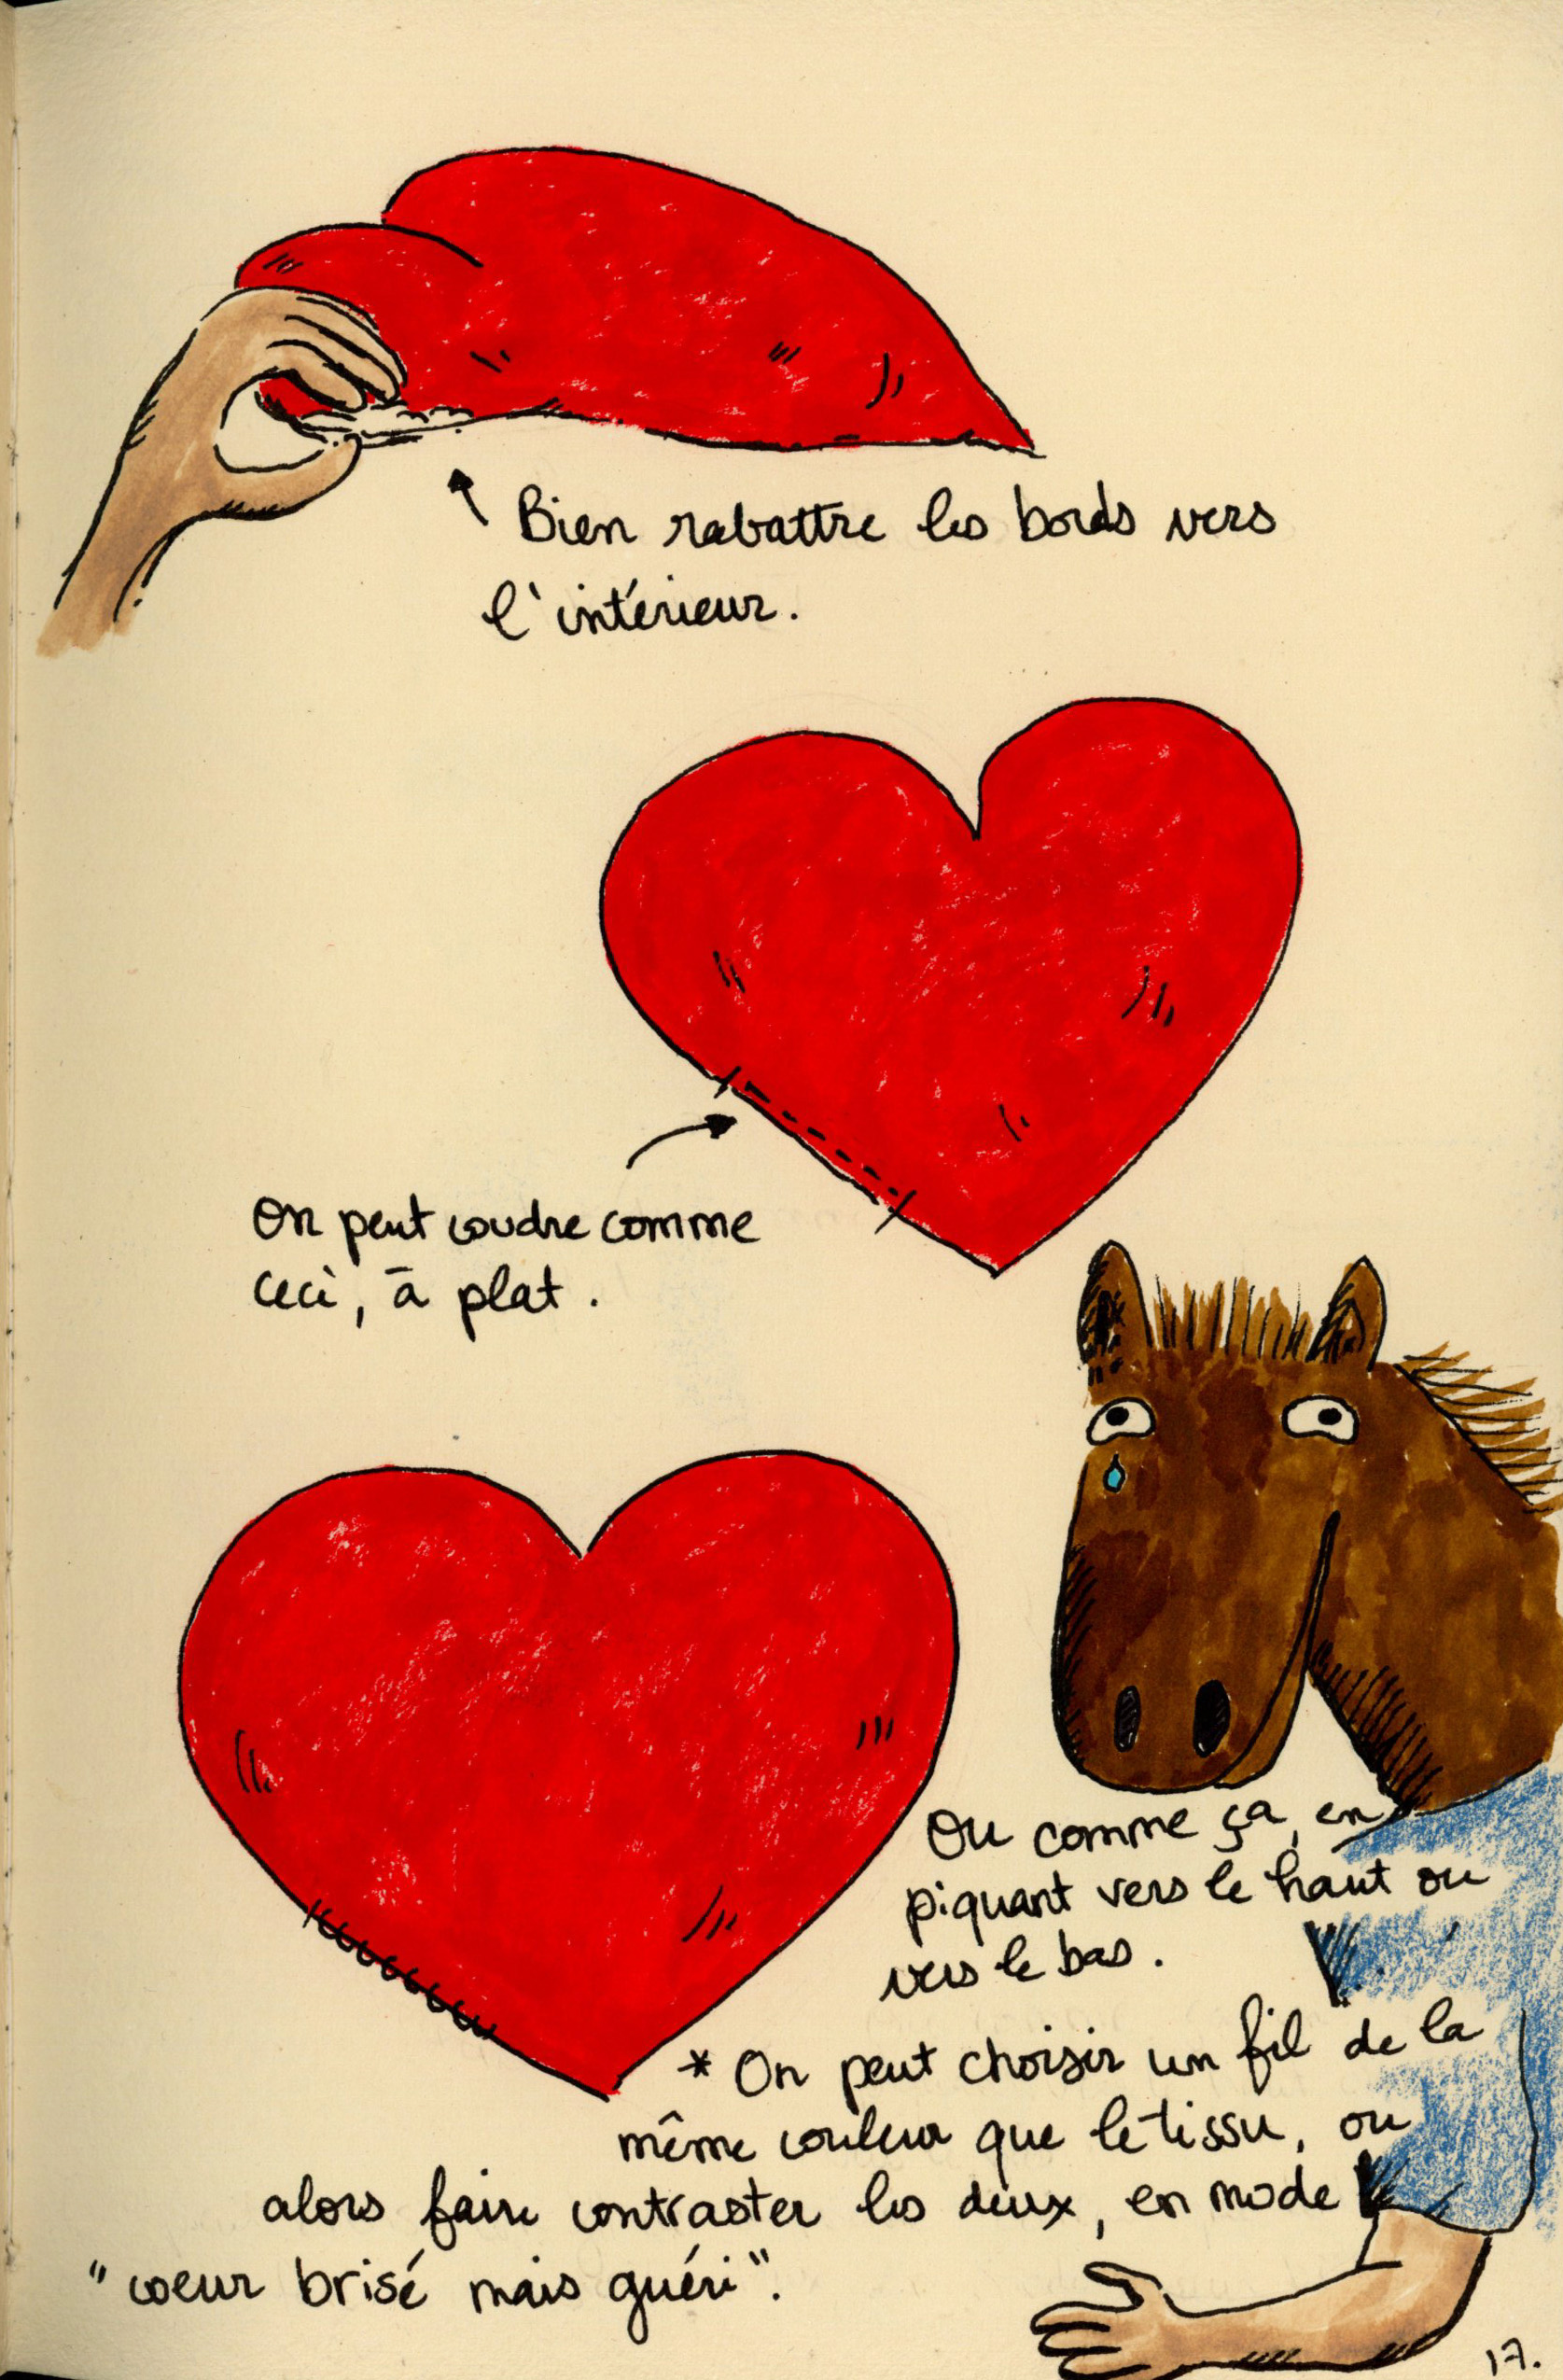 Bien rabattre les bords vers
l'intérieur.
On peut coudre comme
ceci, à plat.
Ou comme ça, en
piquant vers le haut ou
vers le bas.
* On peut choisir un fil de la
même couleur que le tissu, ou
alors faire contraster les deux, en mode
"coeur brisé mais guéri".
17.